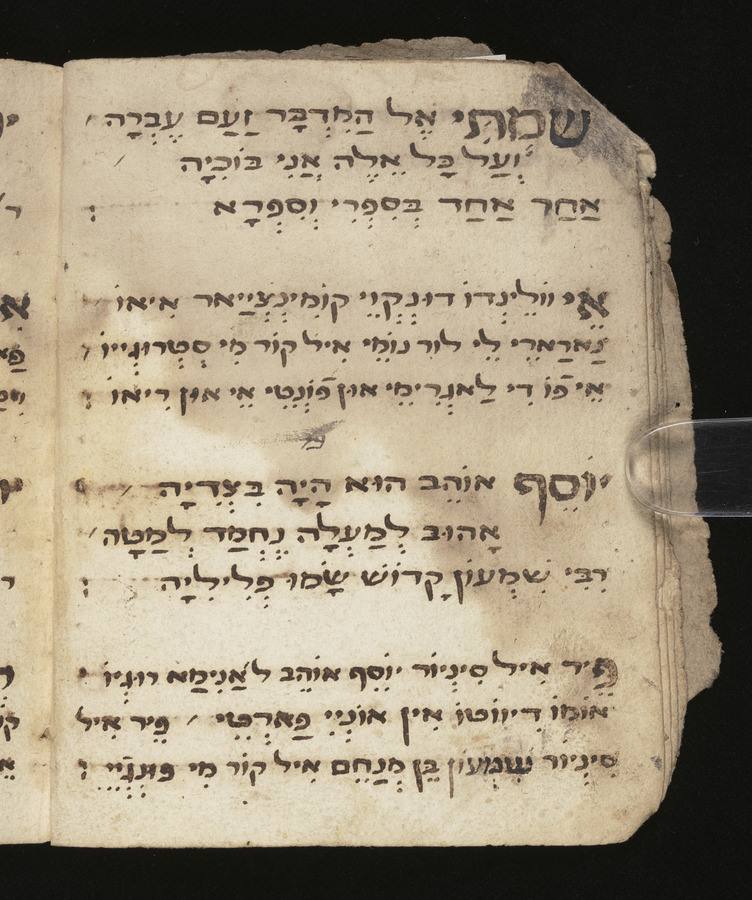 שַׂמְתִּי אֶל הַמִּדְבָּר זַעַם עֶבְרָה
וְעַל כָּל אֵלֶּה אֲנִי בּוֹכִיָּה
אַחַר אַחַד בְּסִפְרִי וְסִפְרָא :
אֵי ווֹלֵינְדוֹ דוּנְקְוֵי קוֹמִינְצְיַיאר אִיאוֹ
נַארַארֵי לֵי לוֹר נוֹמֵי אִיל קוֹר מִי סְטְרוּגְייוֹ
אֵי פוֹ דִי לַאגְרִימֵי אוּן פוֹנְטֵי אֵי אוּן רִיאוֹ :
יוֹסֵף אוֹהֵב הוּא הָיָה בִּצְדִיָּה
אָהוּב לְמַעְלָה נֶחְמַד לְמַטָּה
רִבִּי שִׁמְעוֹן קָדוֹשׁ שָׂמוּ פְלִילִיָּה :
פֵיר אִיל סִינְיוֹר יוֹסֵף אוֹהֵב לַאנִימַא רוּגְיוֹ
אוֹמוֹ דִיווֹטוֹ אִין אוֹנְיִי פַארְטֵי / פֵיר אִיל
סִינְיוֹר שִׁמְעוֹן בֶּן מְנַחֵם אִיל קוֹר מִי פוּנְגֵיי :